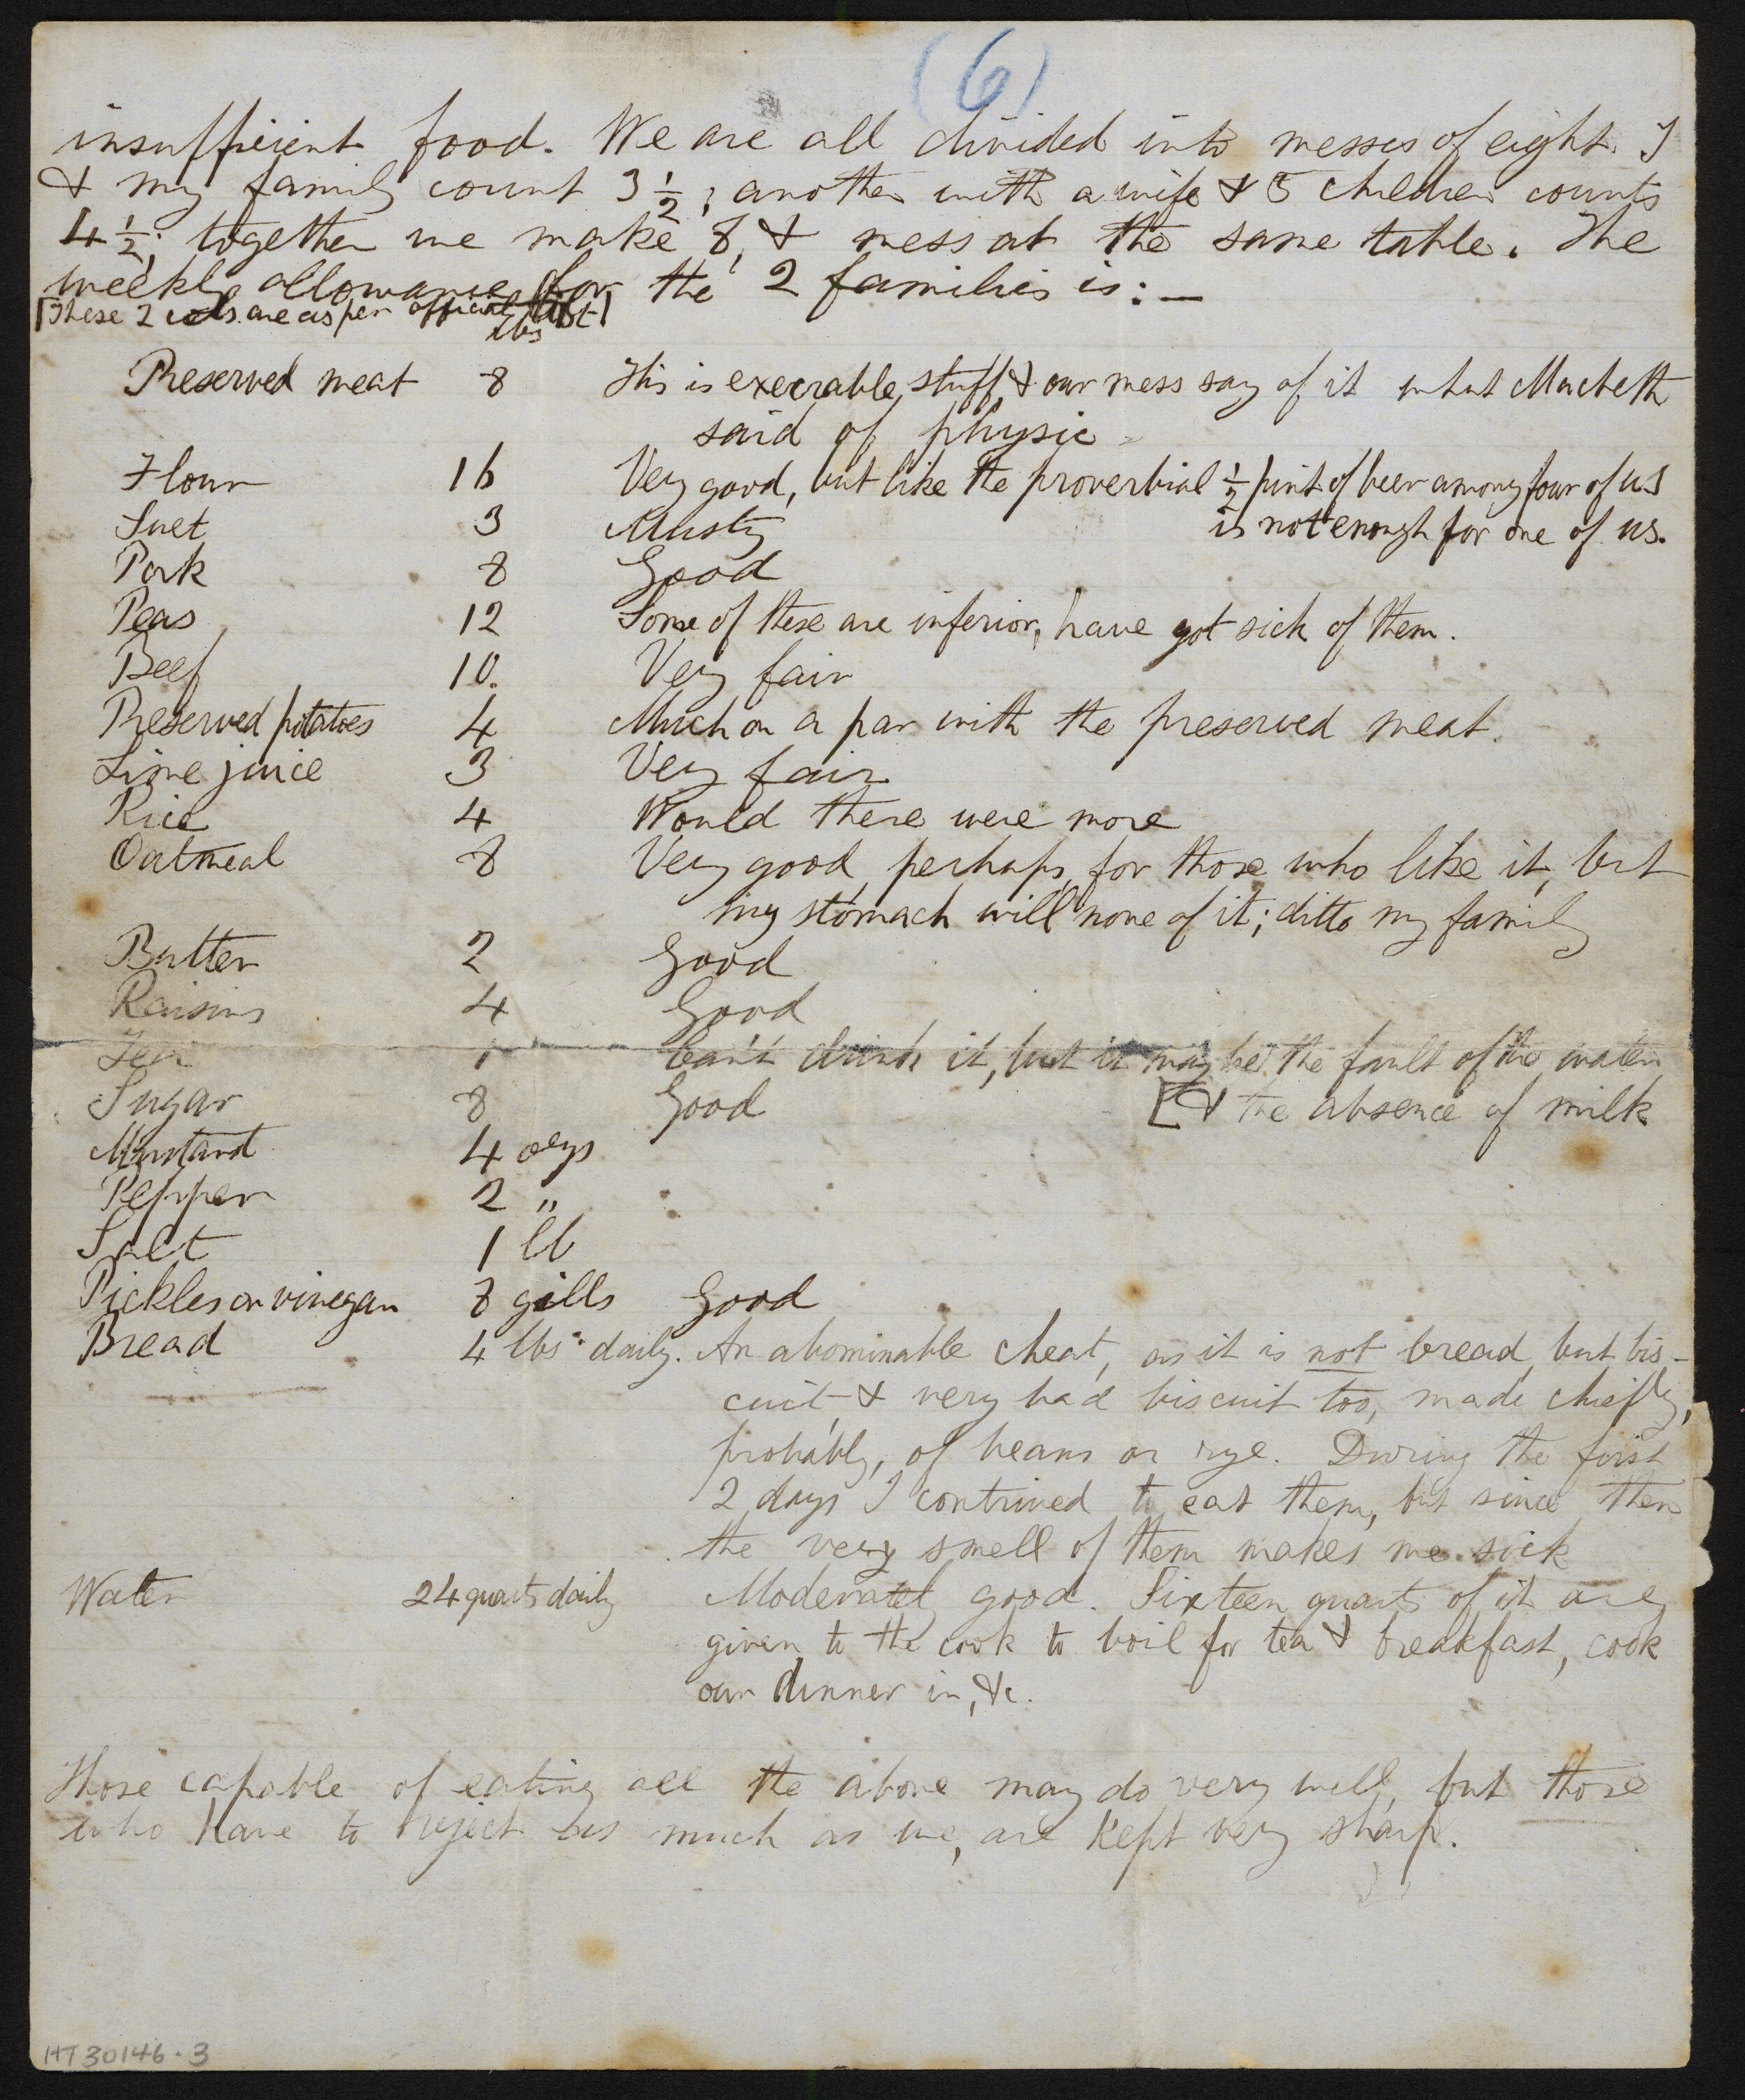 (6)
insufficient food. We are all divided into messes of eight. I
& my family count 3 1/2; another with a wife & 5 children counts
4 1/2; together we make 8, & mess at the same table. The
weekly allowance for the 2 families is: —
[These 2 cols. are as per official list]
lbs
Preserved meat 8 This is execrable stuff, & our mess say of it what Macbeth
said of physic -
Flour 16 Very good, but like the proverbial 1/2 pint of beer among four of us
is not enough for one of us.
Suet 3 Musty
Pork 8 Good
Peas 12 Some of these are inferior, have got sick of them.
Beef 10. Very fair
Preserved potatoes 4 Much on a par with the preserved meat.
Lime juice 3 Very fair
Rice 4 Would there were more
Oatmeal 8 Very good, perhaps, for those who like it, but
my stomach will none of it; ditto my family
Butter 2 Good
Raisins 4 Good
Tea 1 Can't drink it, but it may be the fault of the water
Sugar 8 Good [& the absence of milk
Mustard 4 ozs
Pepper 2 "
Salt 1 lb
Pickles or vinegar 8 gills Good
Bread 4 lbs daily. An abominable cheat, as it is not bread, but bis-
cuit, & very bad biscuit too, made chiefly,
probably, of beans or rye. During the first
2 days I contrived to eat them, but since then
the very smell of them makes me sick
Water 24 quarts daily Moderately good. Sixteen quarts of it are
given to the cook to boil for tea & breakfast, cook
our dinner in, &c.
Those capable of eating all the above may do very well, but those
who have to reject as much as we, are kept very sharp.
HT 30146.3